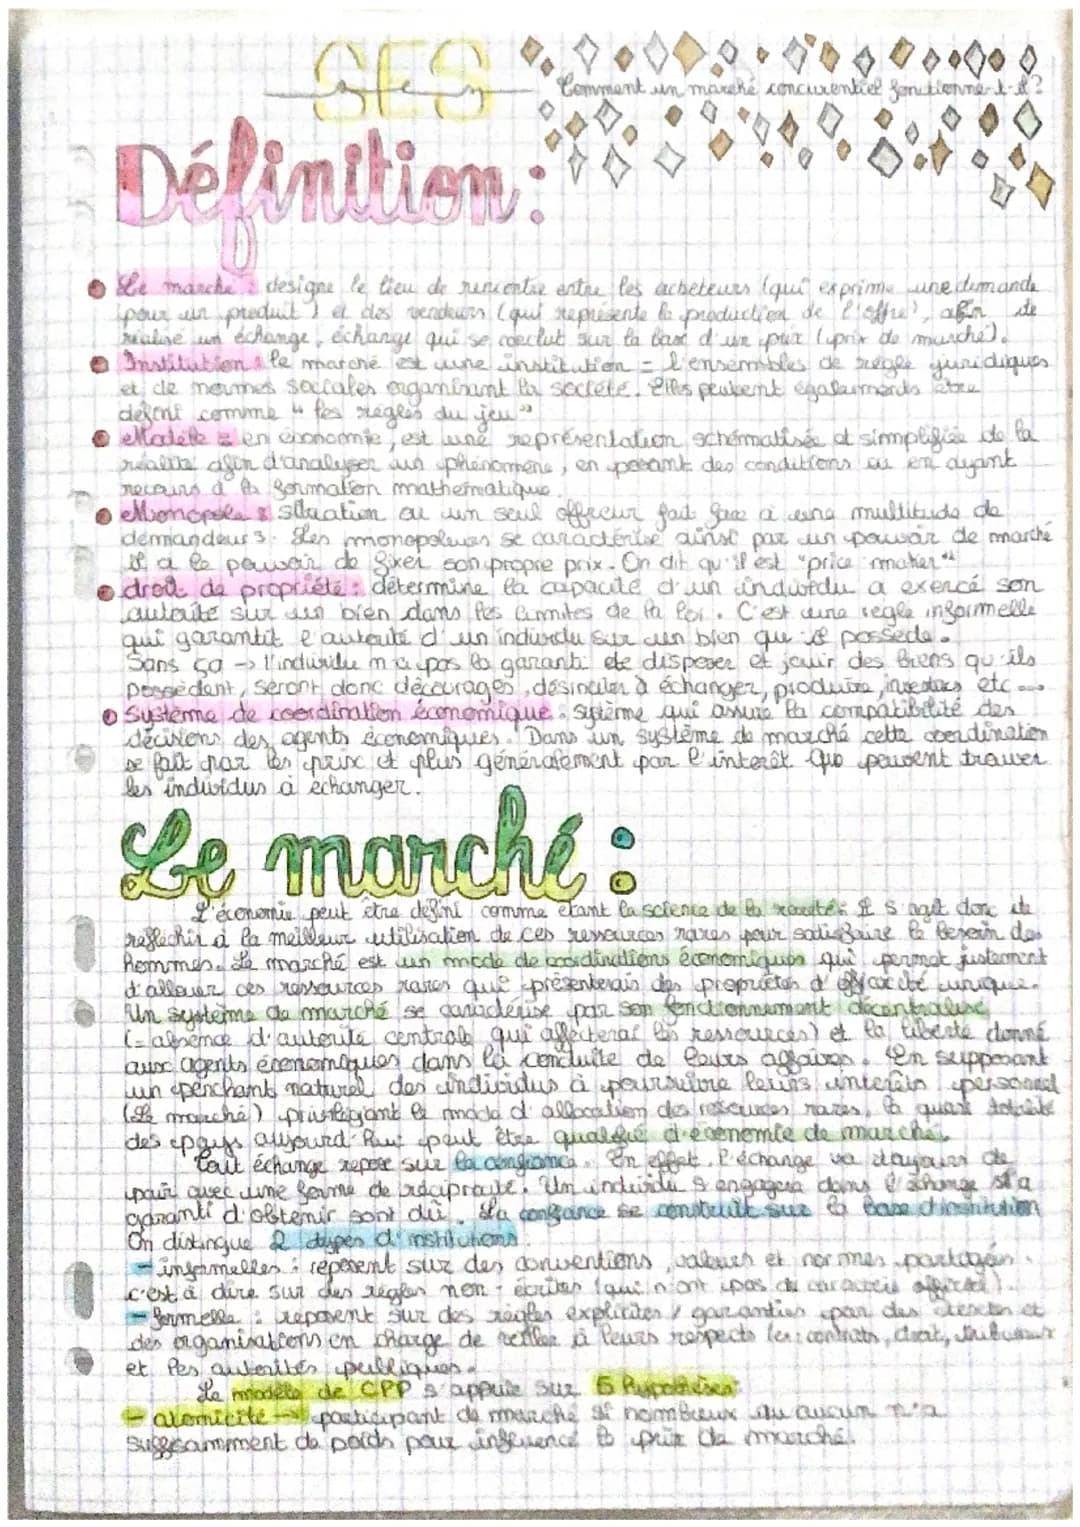 SES
Comment un marché concurentiel fonctionne-t-il?
Définition:
Le marché : designe le lieu de rencontre entre les acheteurs (qui exprime une demande
pour un produit) et des vendeurs (qui représente la production de l'offre), afin de
réalise un échange, échange qui se conclut sur la base d'un prix (prix de marché).
Institution : le marché est une institution = l'ensembles de règle juridiques
et de normes sociales organisant la société. Elles peuvent également être
défini comme " les règles du jeu "
Modèle : en économie, est une représentation schématisée et simplifiée de la
réalité afin d'analyser un phénomène, en posant des conditions ou en ayant
recours à la formation mathématique.
Monopole : situation ou un seul offreur fait face à une multitude de
demandeurs. Les monopoleurs se caractérise ainsi par un pouvoir de marché
il a le pouvoir de fixer son propre prix. On dit qu'il est "price maker"
droit de propriété : détermine la capacité d'un individu a exercé son
autorité sur un bien dans les limites de la loi. C'est une règle informelle
qui garantit l'autorité d'un individu sur un bien qu'il possède.
Sans ça → l'individu n'a pas la garanti de disposer et jouir des biens qu'ils
possèdent, seront donc découragés, désinciter à échanger, produire, investir etc ...
Système de coordination économique : système qui assure la compatibilité des
décisions des agents économiques. Dans un système de marché cette coordination
se fait par les prix et plus généralement par l'interêt que peuvent trouver
les individus à échanger.
Le marché :
L'économie peut être défini comme étant la science de la rareté. Il s'agit donc de
réflechir à la meilleur utilisation de ces ressources rares pour satisfaire le besoin des
hommes. Le marché est un mode de coordinations économiques qui permet justement
d'allouer ces ressources rares que présenterais des propriétés d'efficacité unique.
Un système de marché se caractérise par son fonctionnement décentralisé
(= absence d'autorité centrale qui affecterai les ressources) et la liberté donné
aux agents économiques dans la conduite de leurs affaires. En supposant
un penchant naturel des individus à poursuivre leurs interêts personnel
(Le marché) privilégiant le mode d'allocation des ressources rares, la quasi totalité
des pays aujourd'hui peut être qualifié d'économie de marché.
Tout échange repose sur la confiance. En effet, l'échange va toujours de
pair avec une forme de réciprocité. Un individu s'engagera dans l'échange s'il a
garanti d'obtenir sont dû. La confiance se construit sur la base d'institution
On distingue 2 types d'institutions
- informelles : reposent sur des conventions, valeurs et normes partagées.
c'est à dire sur des règles non-écrites (qui n'ont pas de caractère officiel).
- formelle : reposent sur des règles explicites / garanties par des textes et
des organisations en charge de veiller à leurs respects (ex: contrats, droit, tribunaux
et les autorités publiques.
Le modèle de CPP s'appuie sur 5 hypothèses:
- atomicité → participant de marché si nombreux qu'aucun n'a
suffisamment de poids pour influencé le prix de marché.